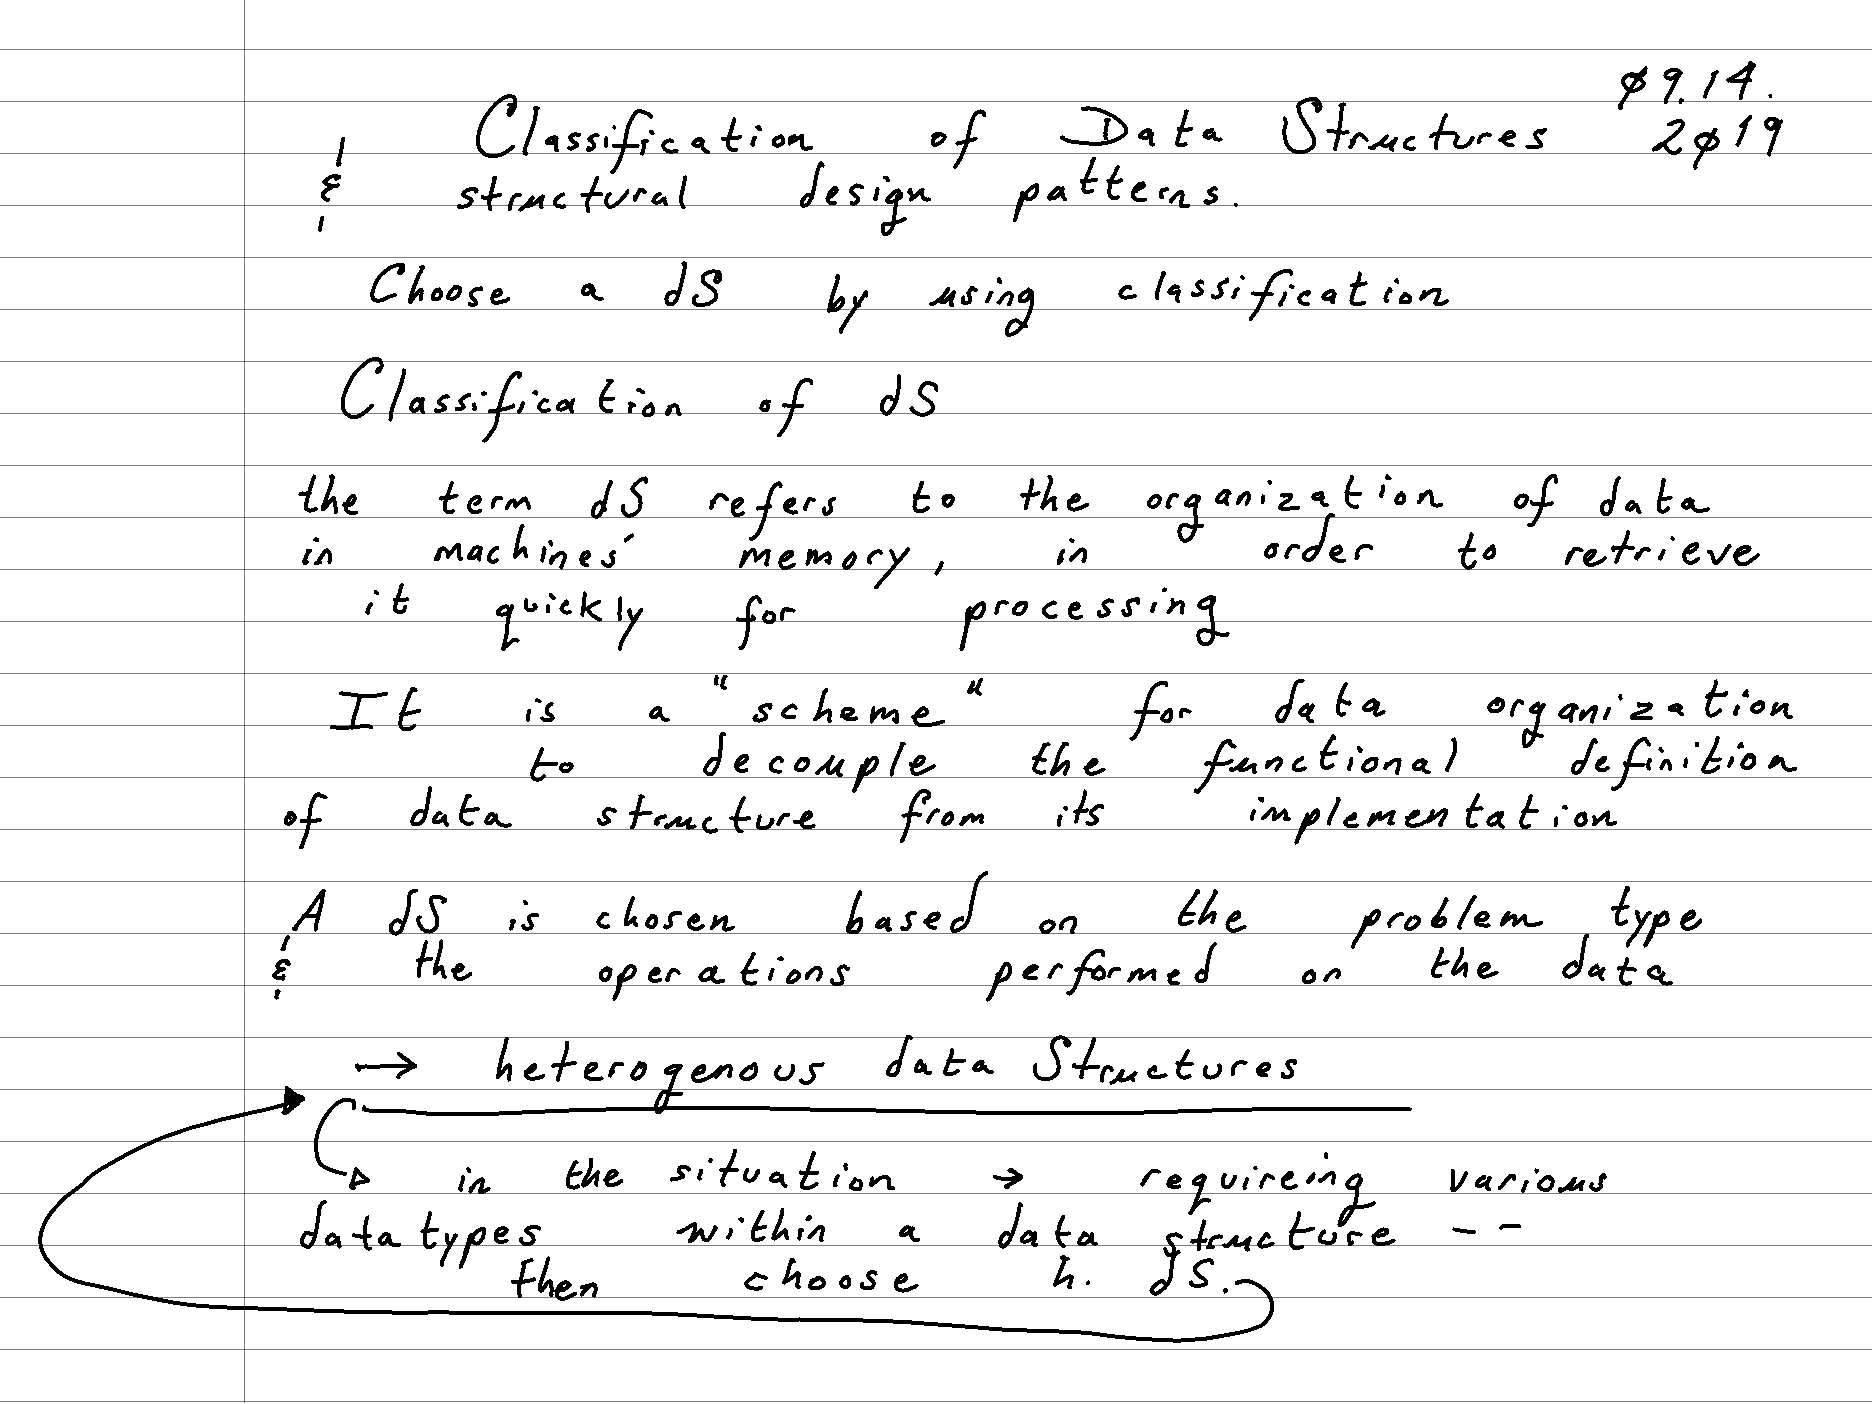 ø9.14.
Classification of Data Structures 2ø19
& structural design patterns.
Choose a dS by using classification
Classification of dS
the term dS refers to the organization of data
in machines' memory, in order to retrieve
it quickly for processing
It is a "scheme" for data organization
to decouple the functional definition
of data structure from its implementation
A dS is chosen based on the problem type
& the operations performed on the data
→ heterogenous data Structures
in the situation → requireing various
datatypes within a data structure --
then choose h. dS.